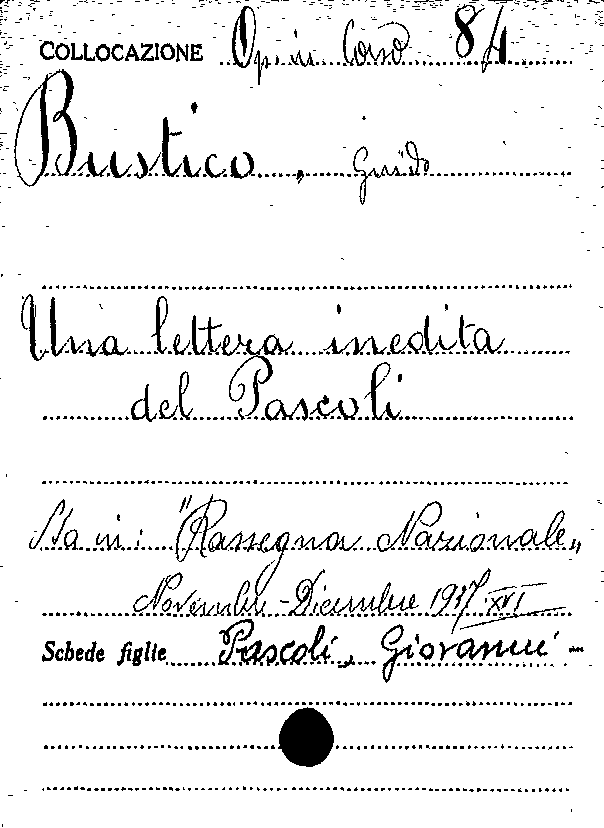 COLLOCAZIONE Op. in Corso 8/4
Bustico, Guido
Una lettera inedita
del Pascoli
Sta in: "Rassegna Nazionale„
Novembre-Dicembre 1937-XVI
Schede figlie Pascoli, Giovanni -